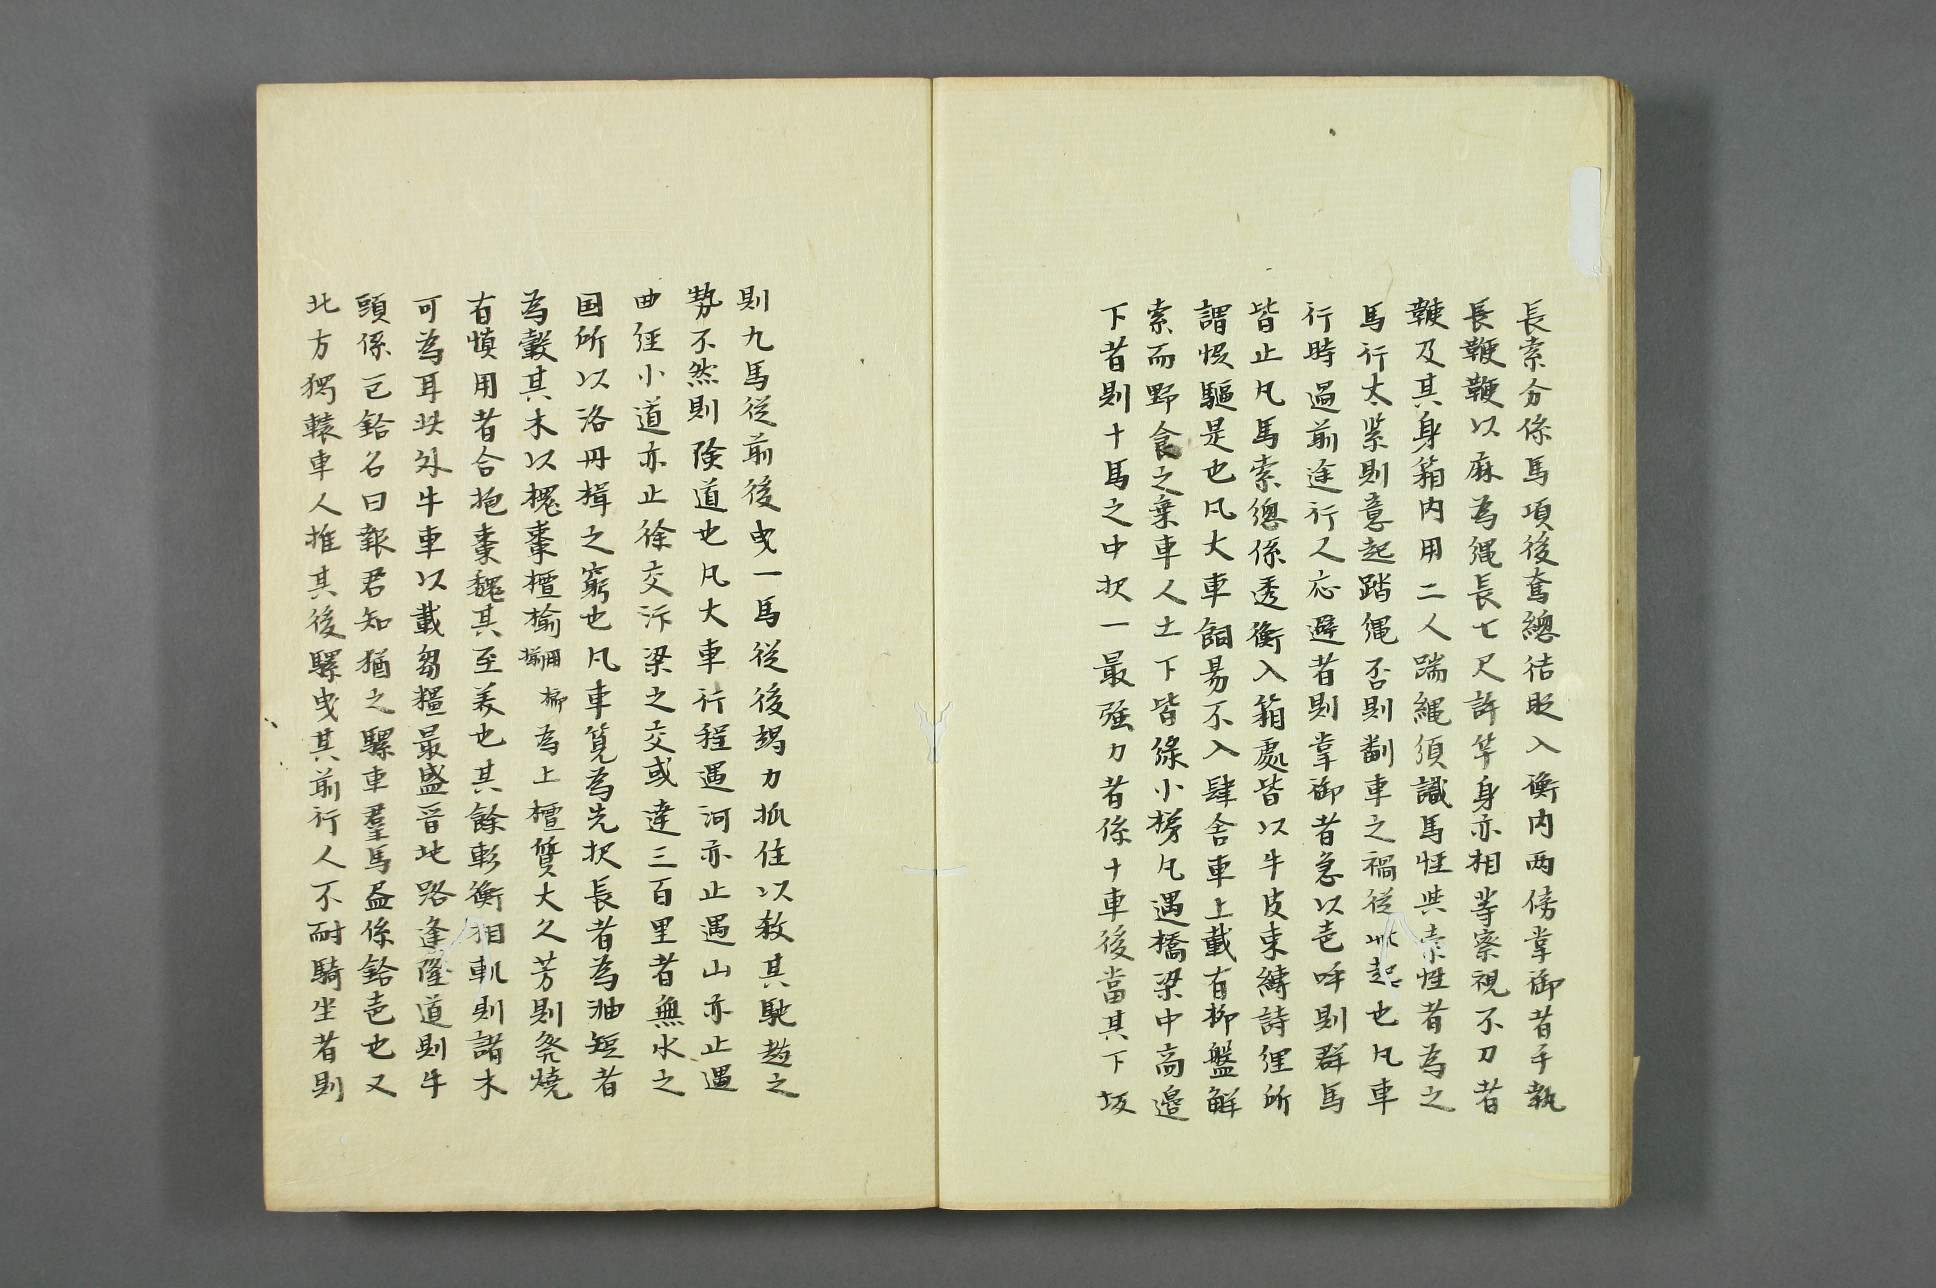 長索分係馬項後奮總結收入衡內両傍掌御者手執
長鞭鞭以麻為繩長七尺許竿身亦相等察視不力者
鞭及其身箱內用二人踹繩須識馬性與索性者為之
馬行太紧則意起踏繩否則翻車之禍從此起也凡車
行時過前途行人応避者則掌御者急以壱呼則群馬
皆止凡馬索總係透衡入箱處皆以牛皮束縛詩經所
謂悞驅是也凡大車飼易不入肆舍車上載有柳盤觧
索而野食之乗車人土下皆緣小梯凡遇橋梁中高邉
下者則十馬之中択一最强力者係十車後當其下坂
則九馬從前後曳一馬從後竭力抓住以救其馳趋之
勢不然則険道也凡大車行程遇河亦止遇山亦止遇
曲徑小道亦止徐交汴梁之交或達三百里者無水之
国所以洛丹楫之窮也凡車筧為先択長者為油短者
為轂其木以槐棗檀榆榔榆用為上檀質大久芳則発燒
有慎用者合抱棗槐其至美也其餘軫衡相軏則諸木
可為耳此外牛車以載芻糧最盛晋地路逢隆道則牛
頭係巨鈴名曰報君知猶之騾車羣馬盈係鈴壱也又
北方獨轅車人推其後騾曳其前行人不耐騎坐者則